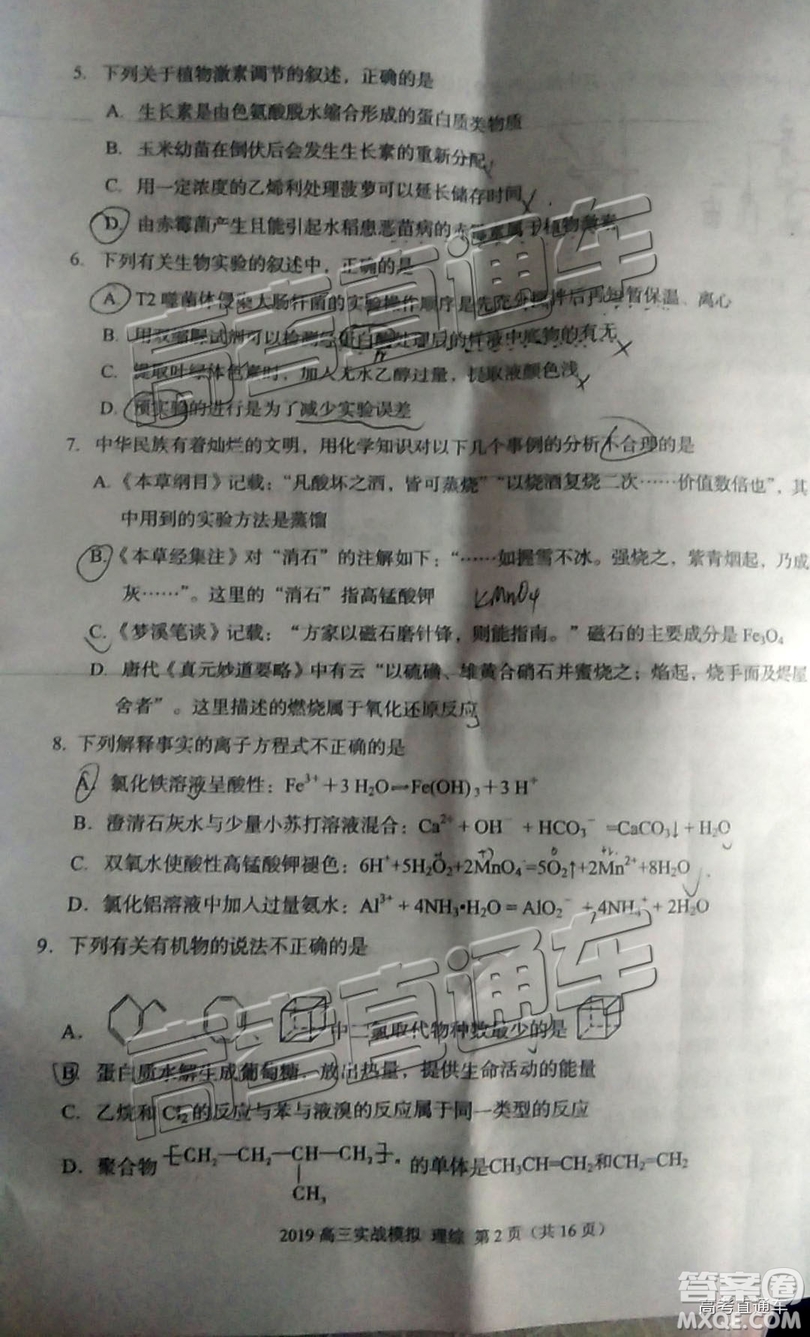 5. 下列关于植物激素调节的叙述，正确的是
A. 生长素是由色氨酸脱水缩合形成的蛋白质类物质
B. 玉米幼苗在倒伏后会发生生长素的重新分配
C. 用一定浓度的乙烯利处理菠萝可以延长储存时间
D. 由赤霉菌产生且能引起水稻患恶苗病的赤霉素属于植物激素
6. 下列有关生物实验的叙述中，正确的是
A. T2 噬菌体侵染大肠杆菌的实验操作顺序是先充分搅拌后再短暂保温、离心
B. 用双缩脲试剂可以检测经蛋白酶处理后的样液中底物的有无
C. 提取叶绿体色素时，加入无水乙醇过量，提取液颜色浅
D. 预实验的进行是为了减少实验误差
7. 中华民族有着灿烂的文明，用化学知识对以下几个事例的分析不合理的是
A.《本草纲目》记载：“凡酸坏之酒，皆可蒸烧”“以烧酒复烧二次……价值数倍也”，其
中用到的实验方法是蒸馏
B.《本草经集注》对“消石”的注解如下：“……如握雪不冰。强烧之，紫青烟起，乃成
灰……”。这里的“消石”指高锰酸钾 KMnO4
C.《梦溪笔谈》记载：“方家以磁石磨针锋，则能指南。”磁石的主要成分是 Fe₃O₄
D. 唐代《真元妙道要略》中有云“以硫磺、雄黄合硝石并蜜烧之；焰起，烧手面及烬屋
舍者”。这里描述的燃烧属于氧化还原反应
8. 下列解释事实的离子方程式不正确的是
A. 氯化铁溶液呈酸性：Fe³⁺＋3 H₂O⇌Fe(OH)₃＋3 H⁺
B. 澄清石灰水与少量小苏打溶液混合：Ca²⁺ + OH⁻ + HCO₃⁻ =CaCO₃↓ + H₂O
C. 双氧水使酸性高锰酸钾褪色：6H⁺+5H₂O₂+2MnO₄⁻=5O₂↑+2Mn²⁺+8H₂O
D. 氯化铝溶液中加入过量氨水：Al³⁺ + 4NH₃•H₂O = AlO₂⁻ + 4NH₄⁺ + 2H₂O
9. 下列有关有机物的说法不正确的是
A. 、 、 中二氯取代物种数最少的是
B. 蛋白质水解生成葡萄糖、放出热量，提供生命活动的能量
C. 乙烷和 Cl₂ 的反应与苯与液溴的反应属于同一类型的反应
D. 聚合物 ⁅CH₂—CH₂—CH—CH₂⁆ₙ 的单体是CH₃CH=CH₂和CH₂=CH₂
CH₃
2019 高三实战模拟 理综 第 2 页（共 16 页）
高考直通车
高考直通车
答案圈
高考直通车
MXQE.COM